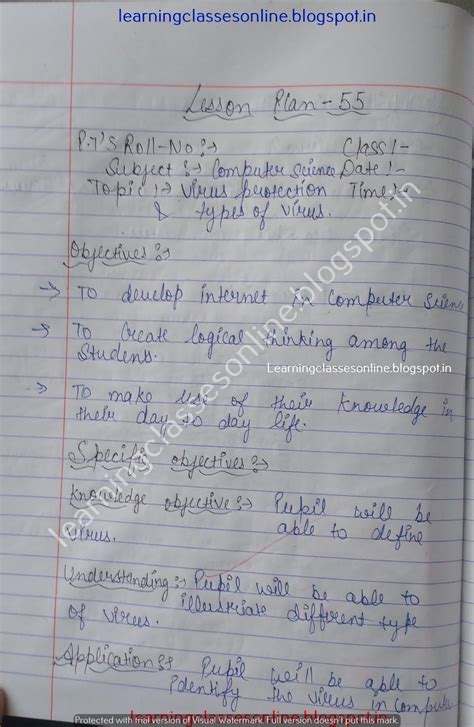 learningclassesonline.blogspot.in
Lesson Plan - 55
P.T'S Roll-No :→ Class :-
Subject :→ Computer Science Date :-
Topic :→ Virus protection Time :-
& types of virus.
Objectives :→
→ To develop internet in computer Science
→ To create logical thinking among the
Students.
Learningclassesonline.blogspot.in
→ To make use of their knowledge in
their day to day life.
Specific objectives :→
Knowledge objective :→ Pupil will be
able to define
virus.
Understanding :→ Pupil will be able to
illustriate different type
of virus.
Application :→ Pupil will be able to
identify the virus in compute
learningclassesonline.blogspot.in
Protected with trial version of Visual Watermark. Full version doesn't put this mark.
learningclassesonline.blogspot.in